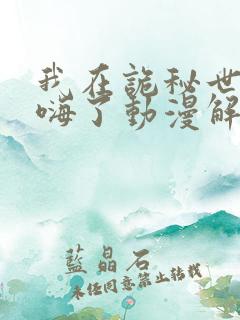 我在詭秘世
嗨了動漫解
藍晶石
未经同意禁止转载